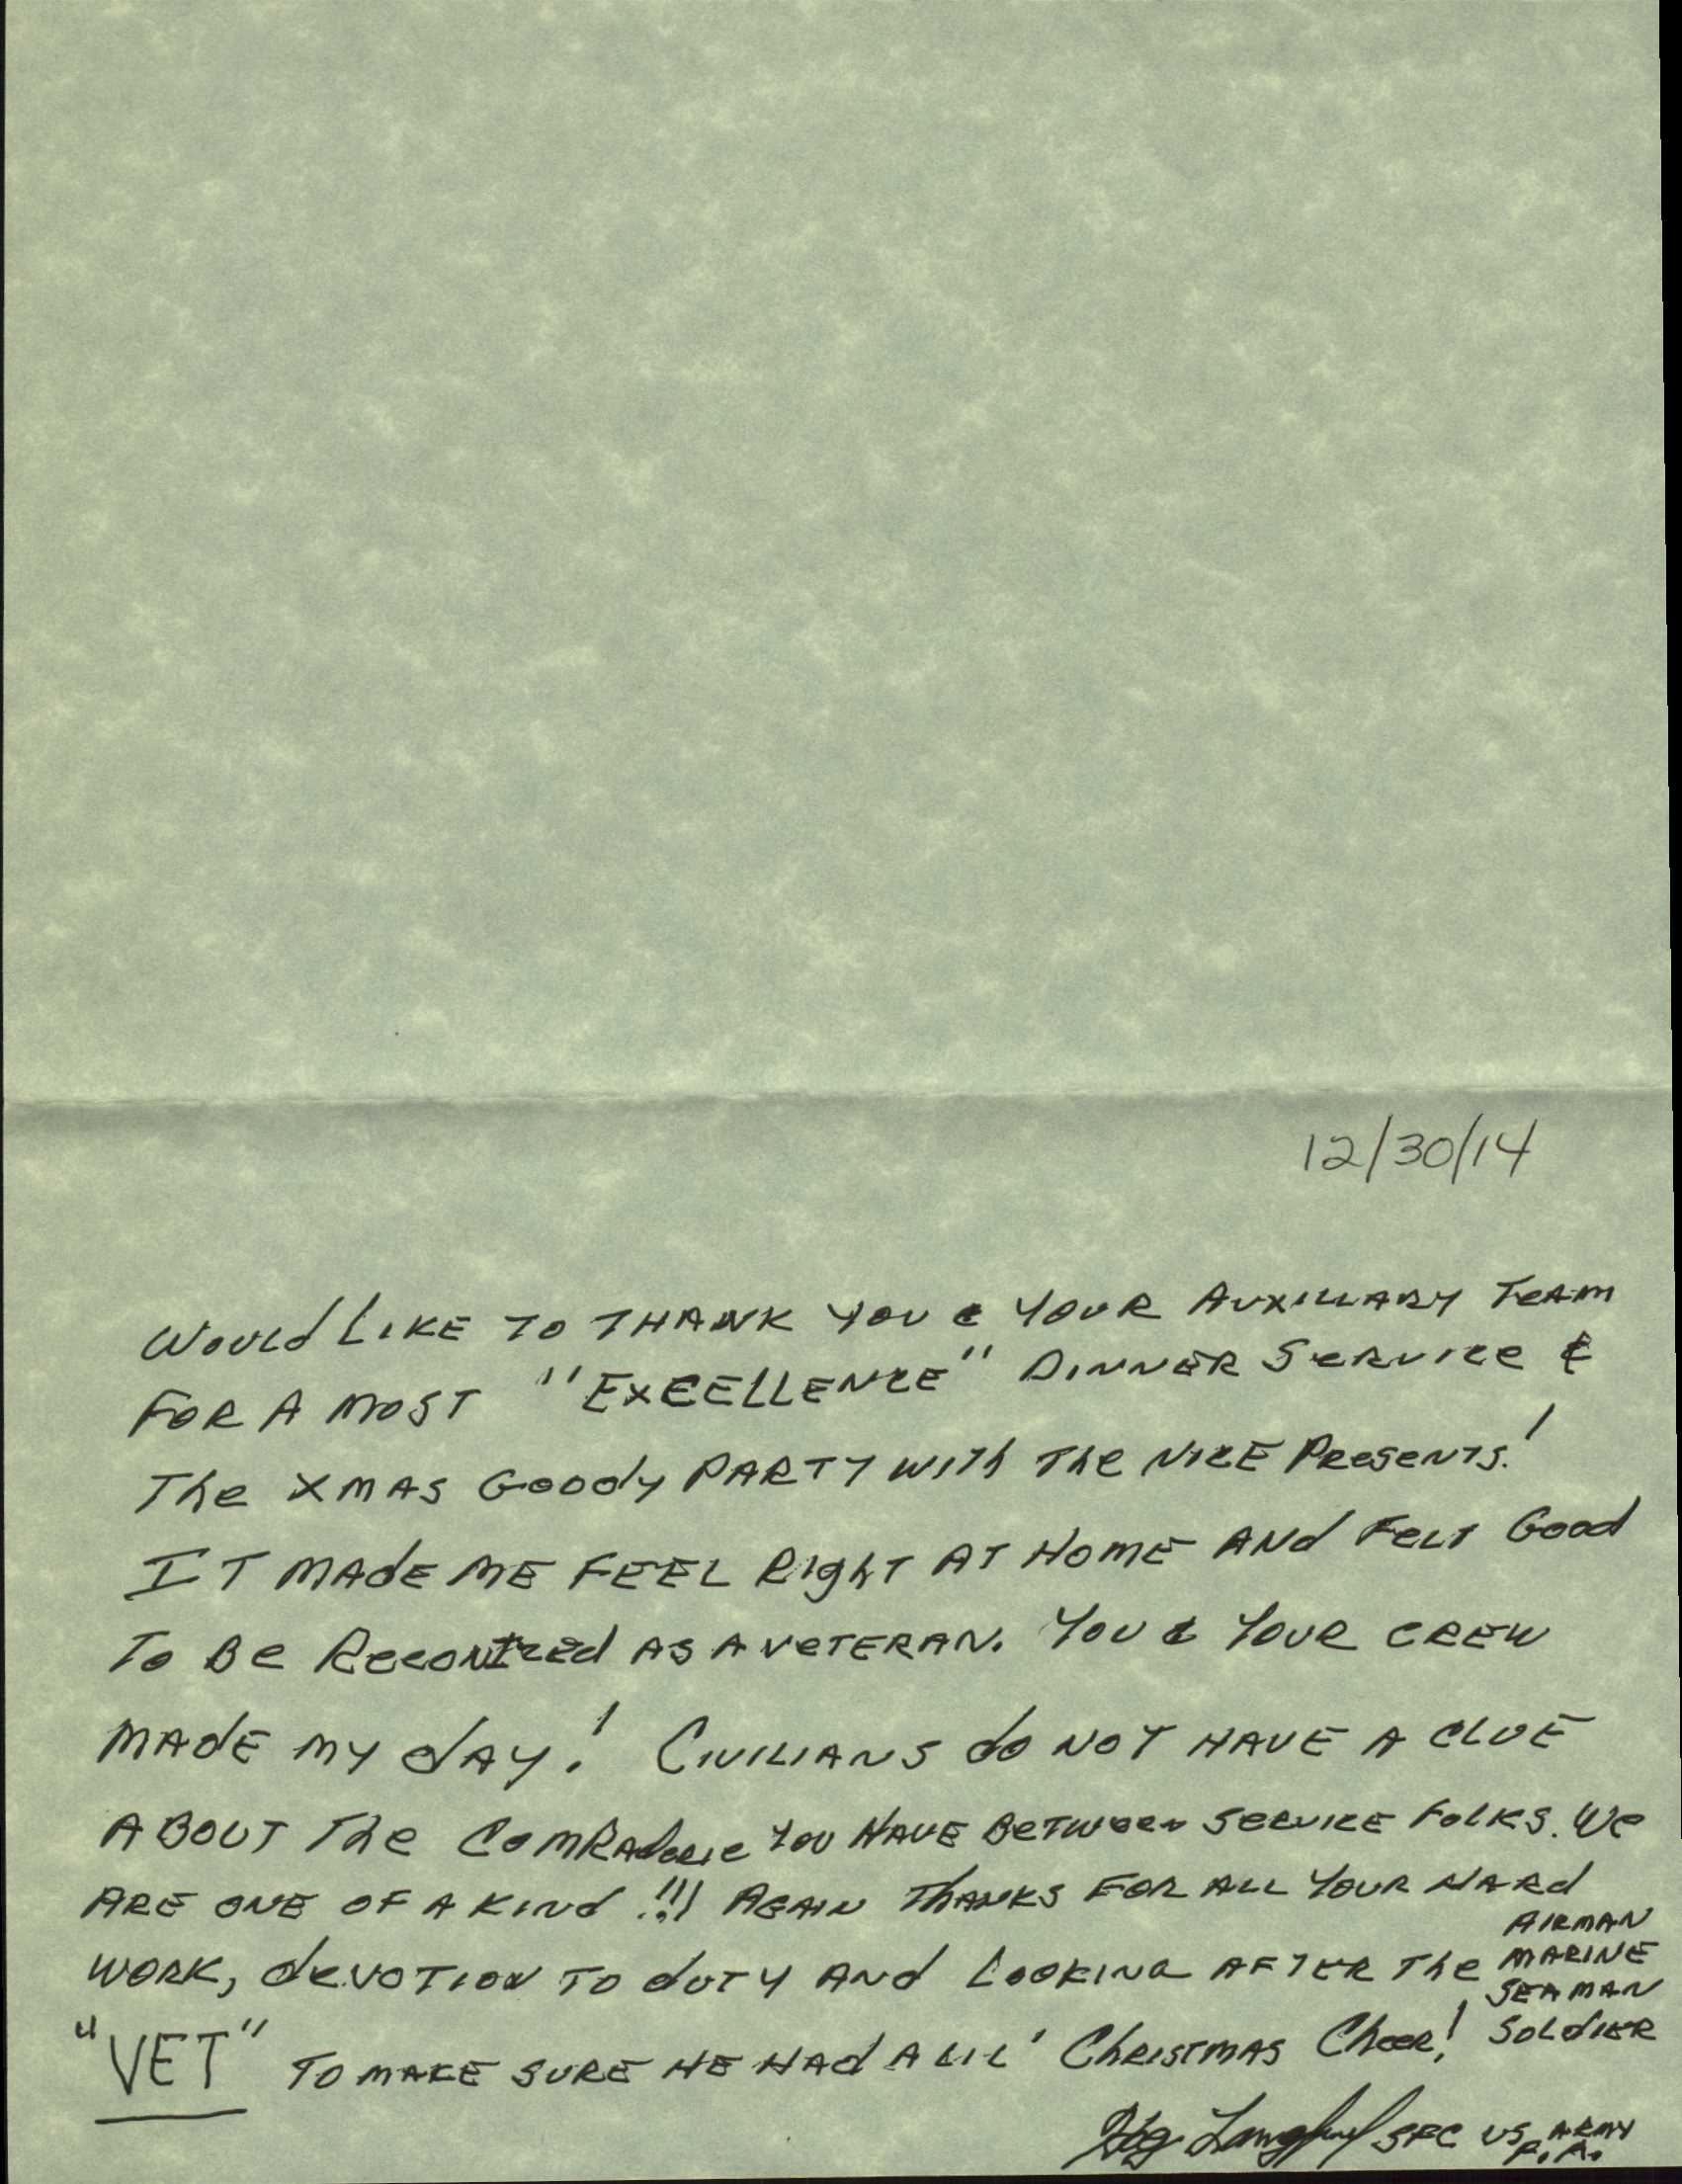 12/30/14
Would Like To THANK YOU & YOUR AUXILLARY TEAM
FOR A MOST "EXCELLENCE" DINNER SERVICE &
The XMAS Goody PARTY with The NICE Presents!
IT MADE ME FEEL Right AT HOME AND Felt Good
To Be Reconized AS A VETERAN. You & Your CREW
MADE MY DAY! CIVILIANS do NOT HAVE A CLUE
ABOUT The Comraderie You HAVE BETWEEN SERVICE Folks. We
ARE ONE OF A KIND!!! AGAIN THANKS FOR ALL YOUR HARD
AIRMAN
WORK, devOTION TO duTY AND LOOKING AFTER The MARINE
SEAMAN
"VET" TO MAKE SURE HE HAD A LIL' CHRISTMAS Cheer! SOLDIER
SFC US ARMY
R.A.